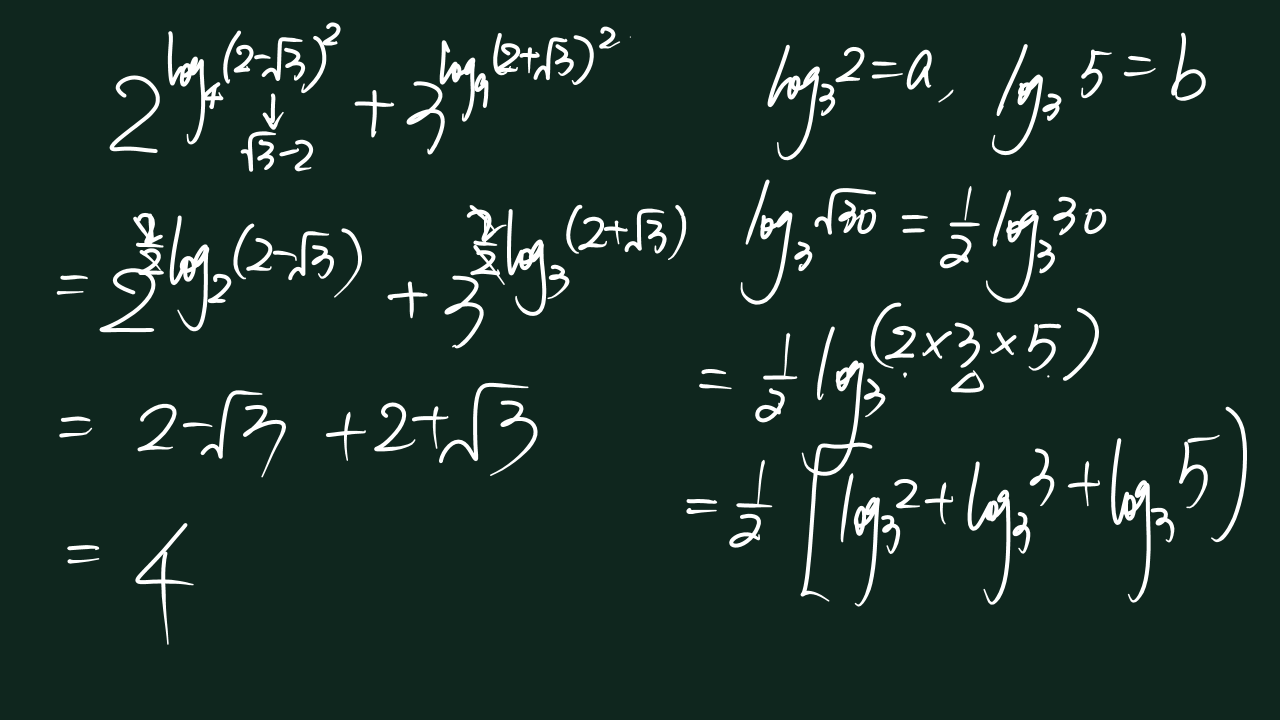 2^{log_4(2-√3)^2} + 3^{log_9(2+√3)^2}
↓
√3-2
= 2^{2/2 log_2(2-√3)} + 3^{2/2 log_3(2+√3)}
= 2-√3 + 2+√3
= 4
log_3 2 = a, log_3 5 = b
log_3 √30 = 1/2 log_3 30
= 1/2 log_3 (2×3×5)
= 1/2 [log_3 2 + log_3 3 + log_3 5)